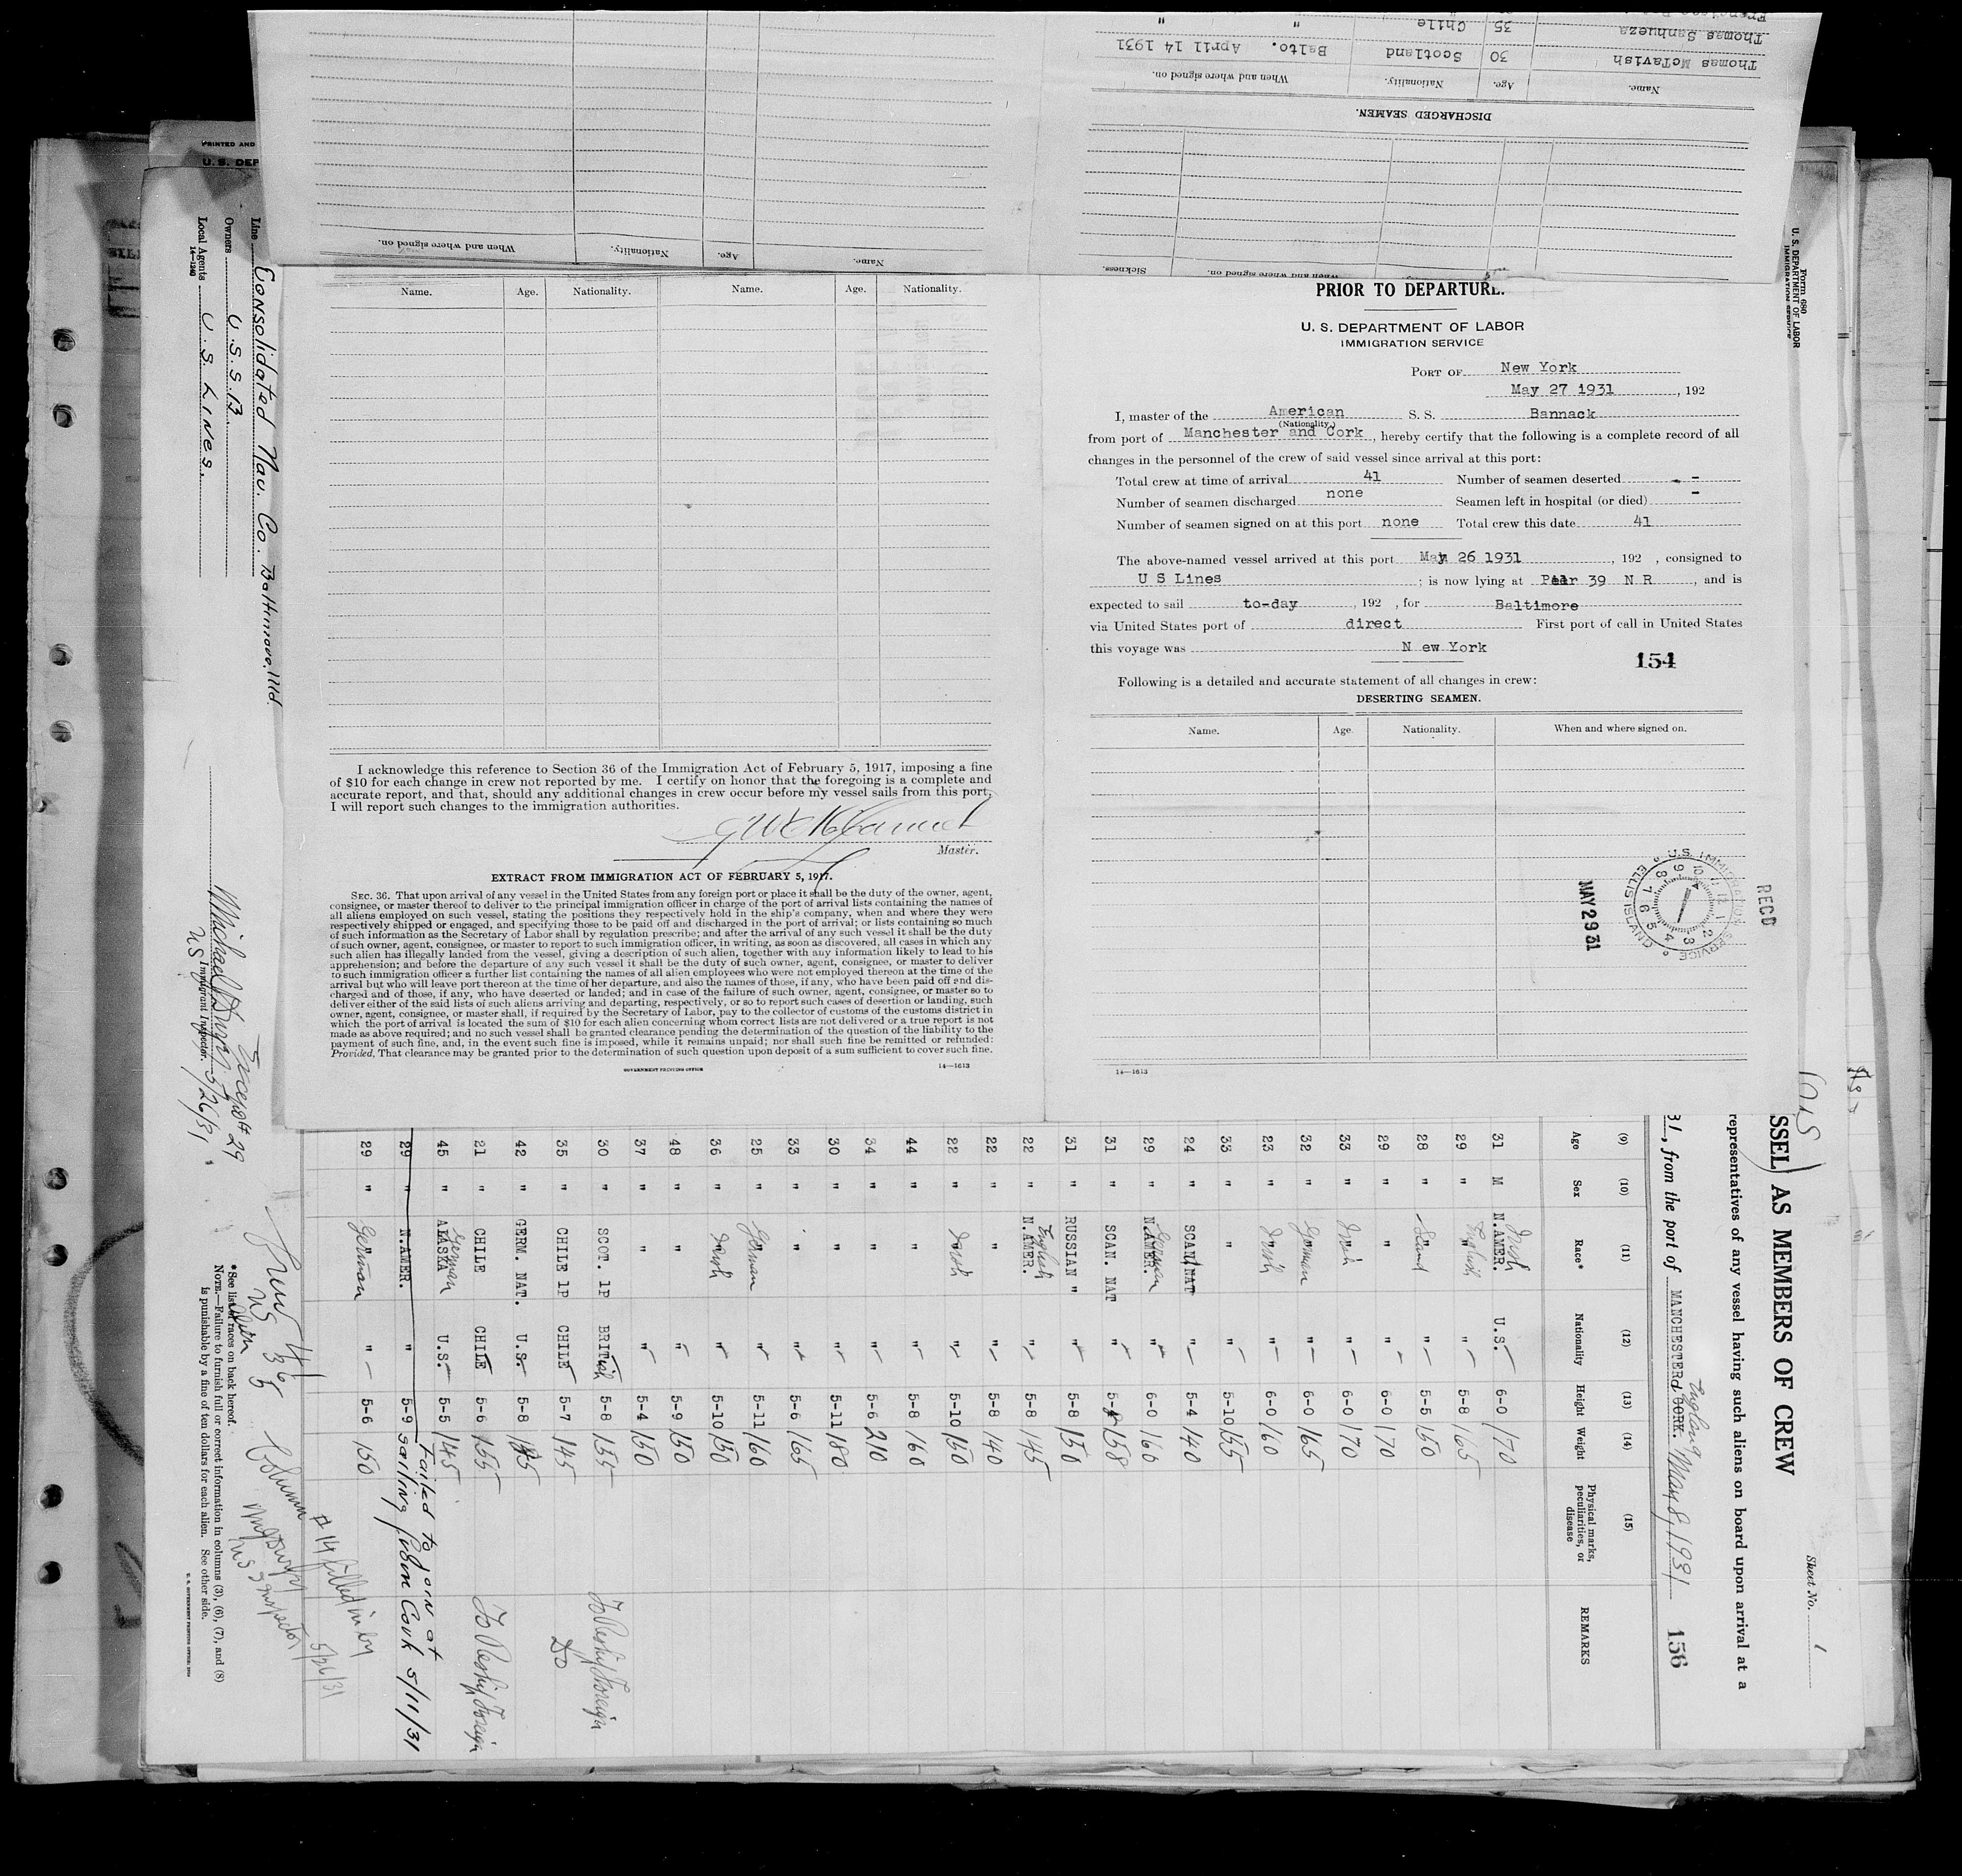 Thomas McTavish 30 Scotland Balto. April 14 1931
Thomas Sanhueza 35 Chile " "
Name. Age. Nationality. When and where signed on.
DISCHARGED SEAMEN.
Name. Age. Nationality. When and where signed on.
Sickness.
PRIOR TO DEPARTURE.
U. S. DEPARTMENT OF LABOR
IMMIGRATION SERVICE
PORT OF New York
May 27 1931, 192
I, master of the American S. S. Bannack
(Nationality.)
from port of Manchester and Cork, hereby certify that the following is a complete record of all
changes in the personnel of the crew of said vessel since arrival at this port:
Total crew at time of arrival 41 Number of seamen deserted - -
Number of seamen discharged none Seamen left in hospital (or died) -
Number of seamen signed on at this port none Total crew this date 41
The above-named vessel arrived at this port May 26 1931, 192 , consigned to
U S Lines ; is now lying at Pier 39 N R, and is
expected to sail to-day, 192 , for Baltimore
via United States port of direct First port of call in United States
this voyage was N ew York
154
Following is a detailed and accurate statement of all changes in crew:
DESERTING SEAMEN.
Name. Age. Nationality. When and where signed on.
RECD
U.S. IMMIGRATION SERVICE
ELLIS ISLAND
MAY 29 31
14—1613
Name. Age. Nationality. Name. Age. Nationality.
I acknowledge this reference to Section 36 of the Immigration Act of February 5, 1917, imposing a fine
of $10 for each change in crew not reported by me. I certify on honor that the foregoing is a complete and
accurate report, and that, should any additional changes in crew occur before my vessel sails from this port,
I will report such changes to the immigration authorities.
Master.
EXTRACT FROM IMMIGRATION ACT OF FEBRUARY 5, 1917.
SEC. 36. That upon arrival of any vessel in the United States from any foreign port or place it shall be the duty of the owner, agent,
consignee, or master thereof to deliver to the principal immigration officer in charge of the port of arrival lists containing the names of
all aliens employed on such vessel, stating the positions they respectively hold in the ship's company, when and where they were
respectively shipped or engaged, and specifying those to be paid off and discharged in the port of arrival; or lists containing so much
of such information as the Secretary of Labor shall by regulation prescribe; and after the arrival of any such vessel it shall be the duty
of such owner, agent, consignee, or master to report to such immigration officer, in writing, as soon as discovered, all cases in which any
such alien has illegally landed from the vessel, giving a description of such alien, together with any information likely to lead to his
apprehension; and before the departure of any such vessel it shall be the duty of such owner, agent, consignee, or master to deliver
to such immigration officer a further list containing the names of all alien employees who were not employed thereon at the time of the
arrival but who will leave port thereon at the time of her departure, and also the names of those, if any, who have been paid off and dis-
charged and of those, if any, who have deserted or landed; and in case of the failure of such owner, agent, consignee, or master so to
deliver either of the said lists of such aliens arriving and departing, respectively, or so to report such cases of desertion or landing, such
owner, agent, consignee, or master shall, if required by the Secretary of Labor, pay to the collector of customs of the customs district in
which the port of arrival is located the sum of $10 for each alien concerning whom correct lists are not delivered or a true report is not
made as above required; and no such vessel shall be granted clearance pending the determination of the question of the liability to the
payment of such fine, and, in the event such fine is imposed, while it remains unpaid; nor shall such fine be remitted or refunded:
Provided, That clearance may be granted prior to the determination of such question upon deposit of a sum sufficient to cover such fine.
GOVERNMENT PRINTING OFFICE 14—1613
PRINTED AND
U. S. DEP
Form 680
U. S. DEPARTMENT OF LABOR
IMMIGRATION SERVICE
Sheet No. 1
SSEL AS MEMBERS OF CREW
representatives of any vessel having such aliens on board upon arrival at a
31, from the port of MANCHESTER England May 8, 1931 156
(9) (10) (11) (12) (13) (14) (15)
Age Sex Race* Nationality Height Weight Physical marks, peculiarities, or disease REMARKS
31 M N.AMER. Irish U.S. 6-0 170
29 " English " 5-8 165
28 " Scand " 5-5 150
29 " " " 6-0 170
33 " Irish " 6-0 170
32 " German " 6-0 165
23 " Irish " 6-0 160
33 " " " 5-10 155
24 " SCAN NAT " 5-4 140
29 " N.AMER. German " 6-0 160
31 " SCAN. NAT " 5-8 158
31 " RUSSIAN " " 5-8 150
22 " N.AMER. English " 5-8 145
22 " " " 5-8 140
22 " Irish " 5-10 150
44 " " 5-8 160
34 " " 5-6 210
30 " " 5-11 180
33 " " " 5-6 165
25 " German " 5-11 160
36 " Irish " 5-10 150
48 " " " 5-9 150
37 " " " 5-4 150
30 " SCOT. 1P BRITish 5-8 155 To Reship Foreign
35 " CHILE 1P CHILE 5-7 145 DD
42 " GERM. NAT. U.S. 5-8 185
21 " CHILE CHILE 5-6 155 To Reship Foreign
45 " ALASKA German U.S. 5-5 145
29 " N.AMER. " 5-9 Failed to join at sailing from Cork 5/11/31
29 " German " 5-6 150
#14 filled in by
5/26/31
Column
US Inspector
*See list of races on back hereof.
NOTE.—Failure to furnish full or correct information in columns (3), (6), (7), and (8)
is punishable by a fine of ten dollars for each alien. See other side.
Line Consolidated Nav. Co. Baltimore, Md.
Owners U.S.S.B.
Local Agents U.S. Lines.
14—1240
Except #29
5/26/31
US Immigrant Inspector.